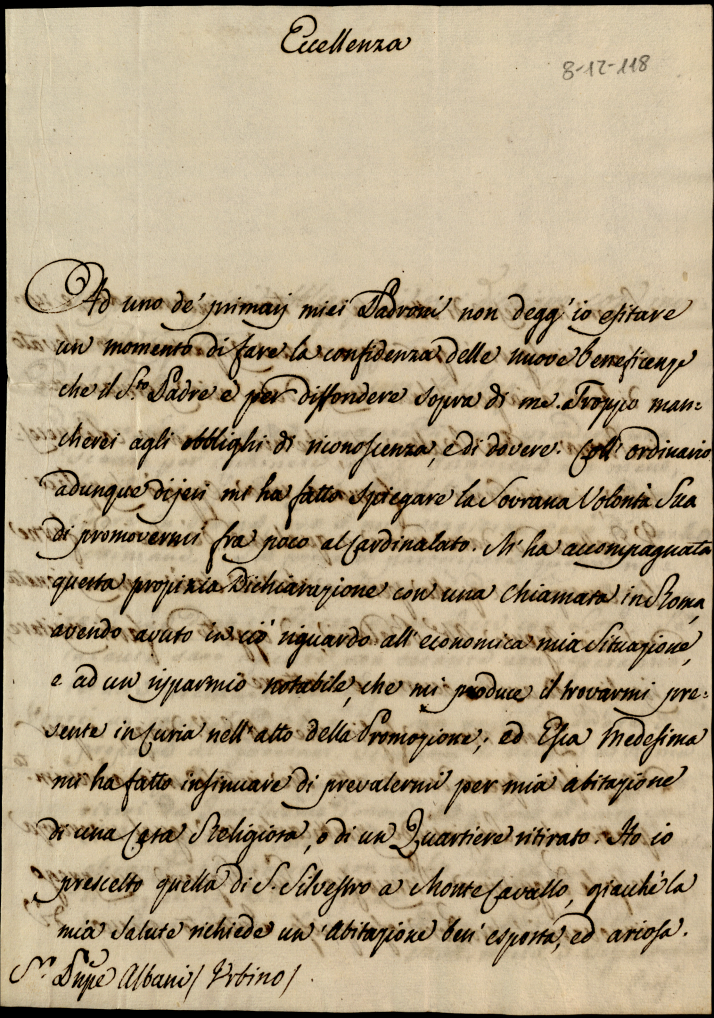 Eccellenza
8-12-118
Ad uno de' primarj miei Padroni non degg' io esitare
un momento di fare la confidenza delle nuove beneficenze
che il S.to Padre è per diffondere sopra di me. Troppo man=
cherei agli obblighi di riconoscenza, e di dovere. Coll' ordinario
adunque di jeri mi ha fatto spiegare la Sovrana Volontà Sua
di promovermi fra poco al Cardinalato. M' ha accompagnata
questa propizia Dichiarazione con una chiamata in Roma,
avendo avuto in ciò riguardo all' economica mia Situazione,
e ad un risparmio notabile, che mi produce il trovarmi pre=
sente in Curia nell' atto della Promozione; ed Essa Medesima
mi ha fatto insinuare di prevalermi per mia abitazione
di una Casa Religiosa, o di un Quartiere ritirato. Ho io
prescelto quella di S. Silvestro a Monte Cavallo, giacchè la
mia salute richiede un' Abitazione ben' esposta, ed ariosa.
S.r Pnpe Albani / Urbino /